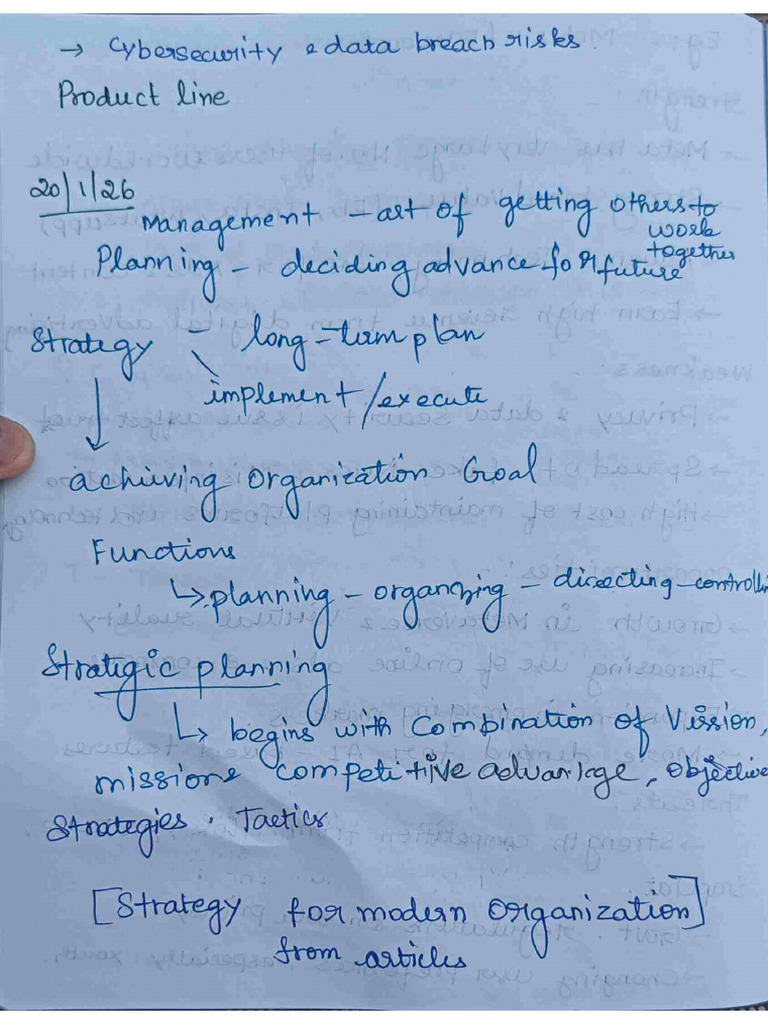 → Cybersecurity & data breach risks.
Product line
20/1/26
Management - art of getting others to work together
Planning - deciding advance for future
Strategy - long-term plan
implement/execute
achieving organization Goal
Functions
↳ planning - organizing - directing - controlli
Strategic planning
↳ begins with Combination of Vission,
missions competitive advantage, objective
Strategies, Tactics
[Strategy for modern Organization]
from articles